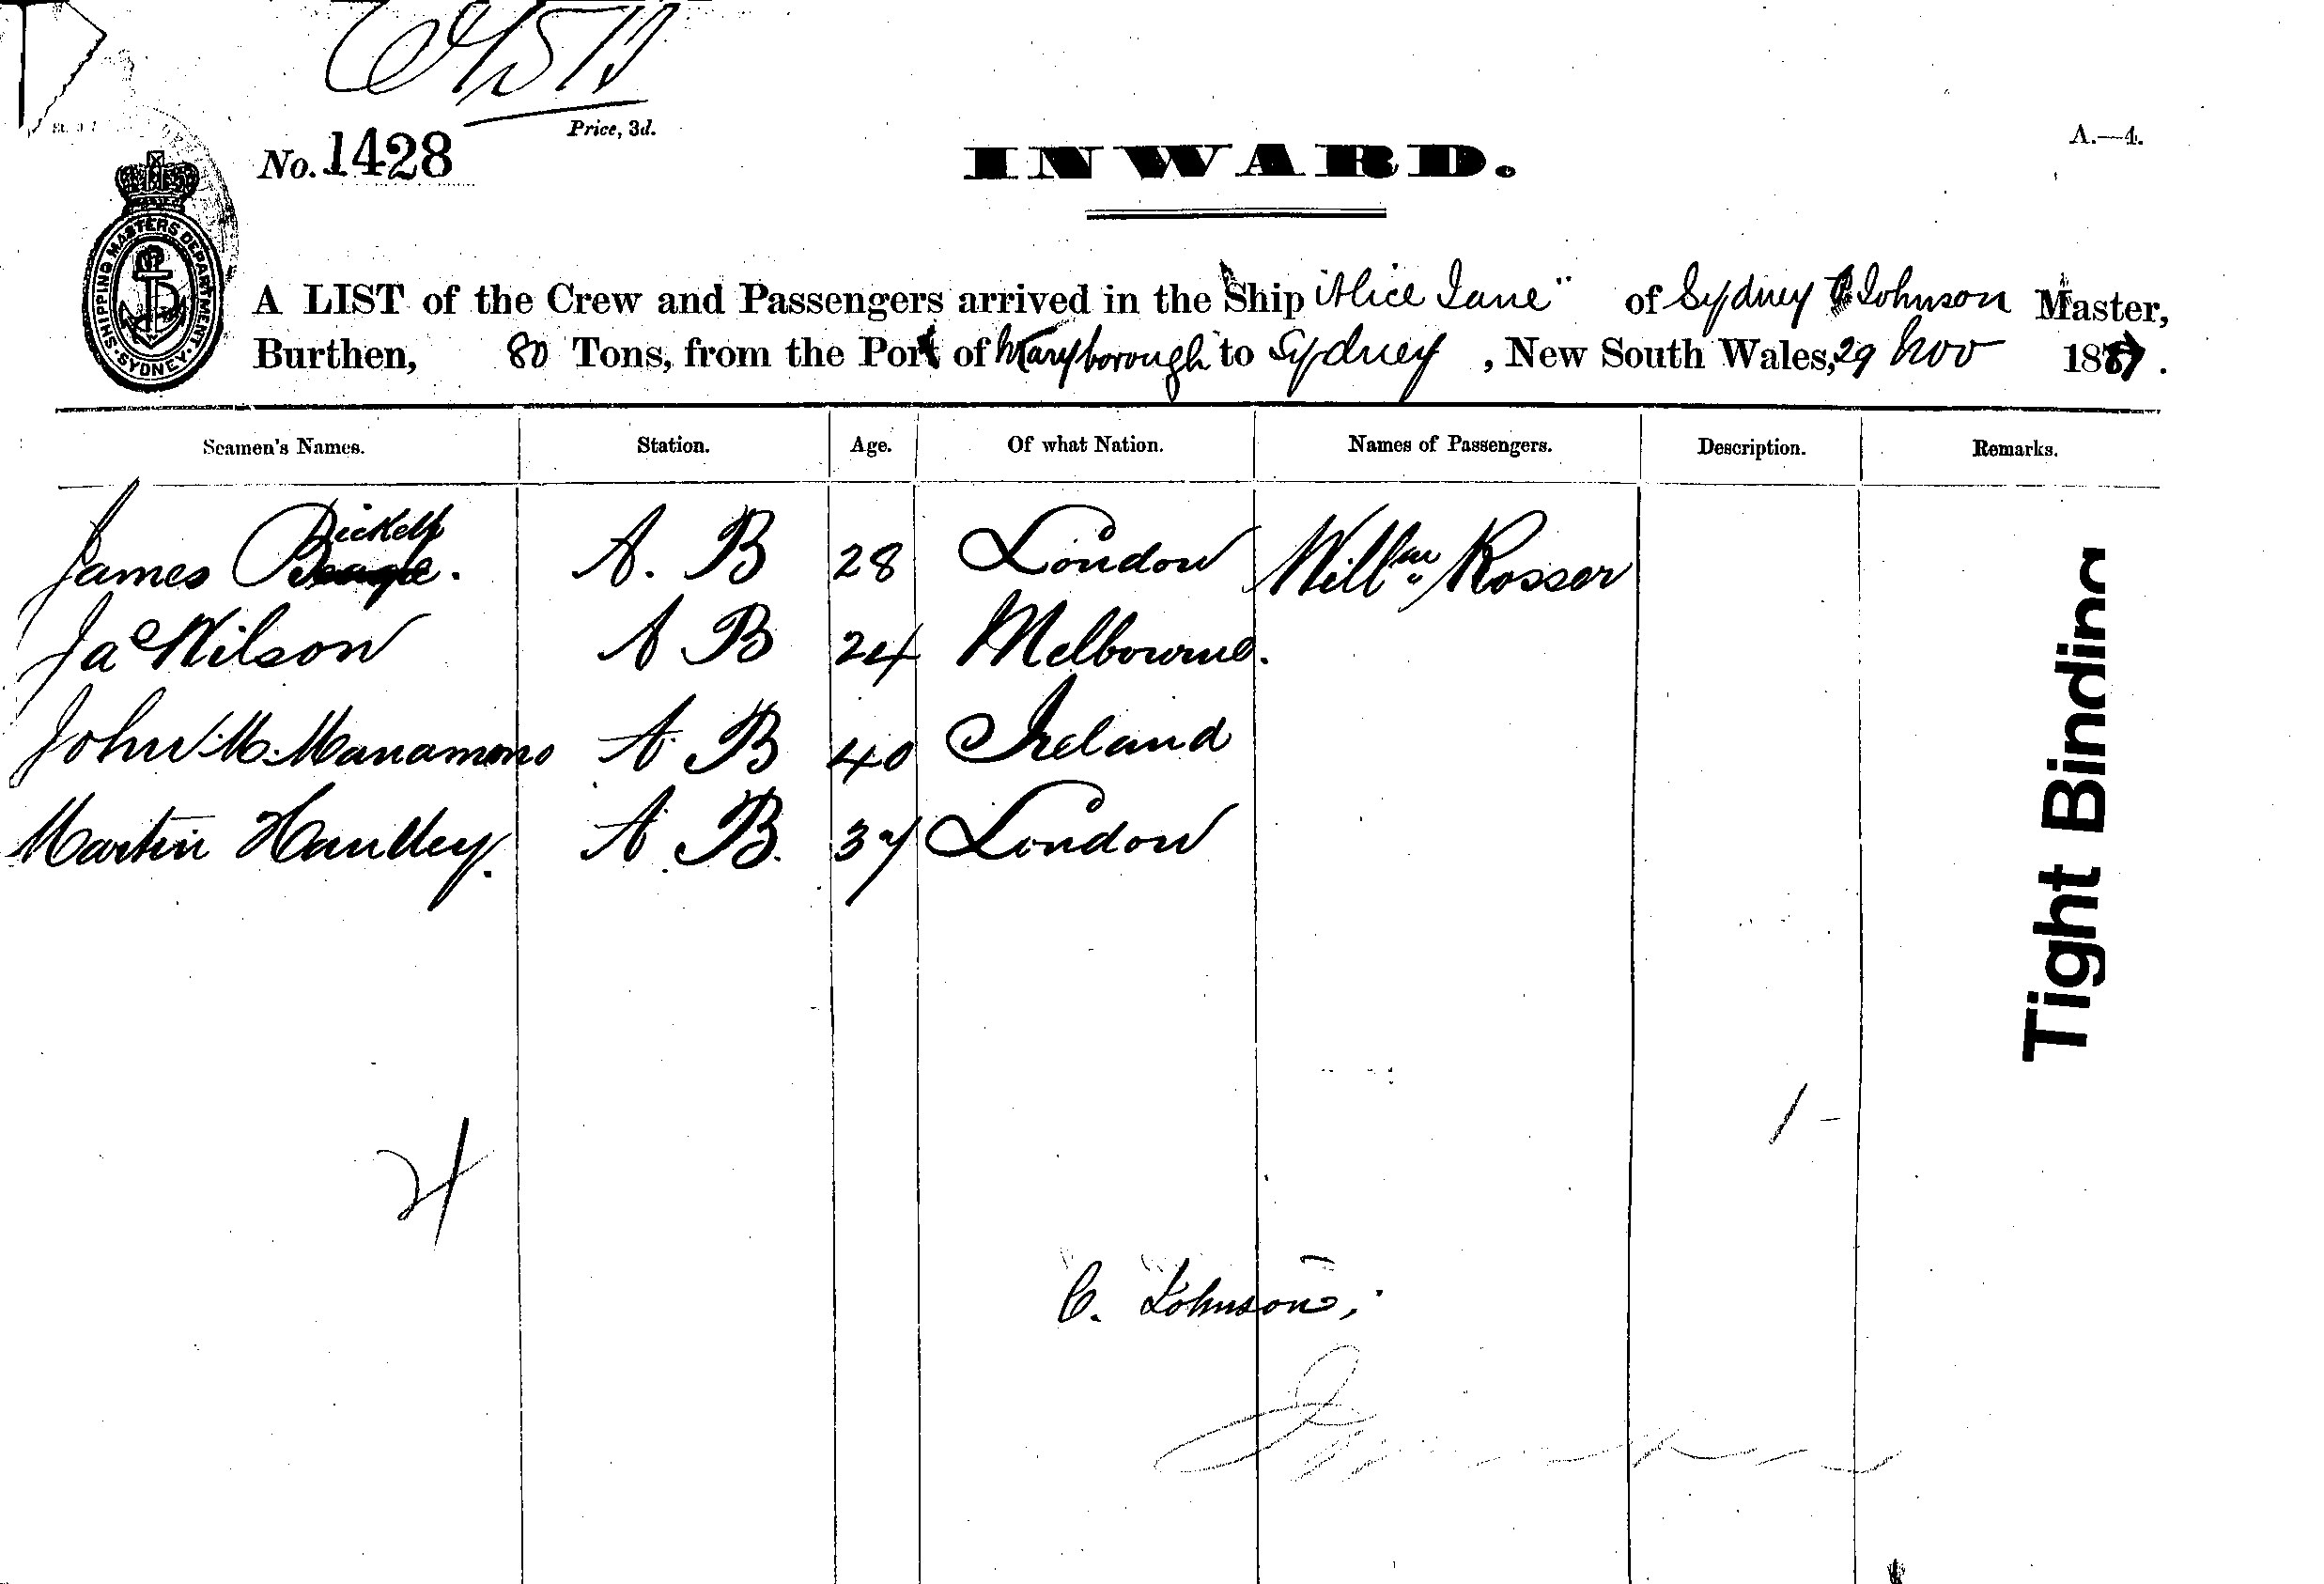 Price, 3d.
No. 1428
INWARD.
A.—4.
SHIPPING MASTERS DEPARTMENT. SYDNEY.
A LIST of the Crew and Passengers arrived in the Ship "Alice Jane" of Sydney C Johnson Master,
Burthen, 80 Tons, from the Port of Maryborough to Sydney, New South Wales, 29 Nov 1887.
Seamen's Names. Station. Age. Of what Nation. Names of Passengers. Description. Remarks.
James A. B 28 London Willm Rosser
Jas Wilson A B 24 Melbourne.
John A B 40 Ireland
Martin Handley. A B. 37 London
4 1 -
C. Johnson
Tight Binding